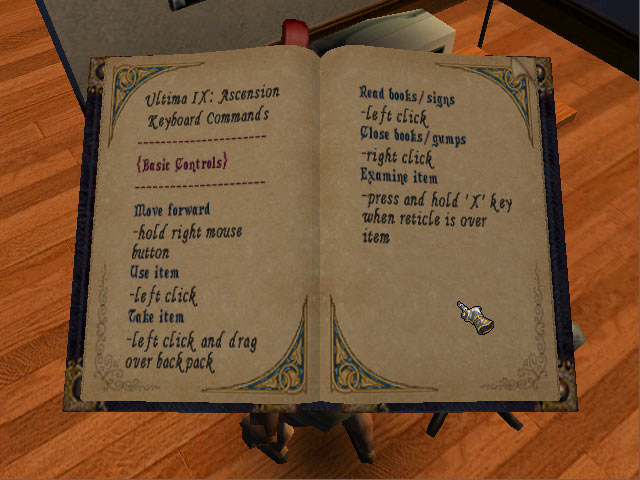 Ultima IX: Ascension
Keyboard Commands
--------------------
{Basic Controls}
--------------------
Move forward
-hold right mouse
button
Use item
-left click
Take item
-left click and drag
over backpack
Read books/signs
-left click
Close books/gumps
-right click
Examine item
-press and hold 'X' key
when reticle is over
item